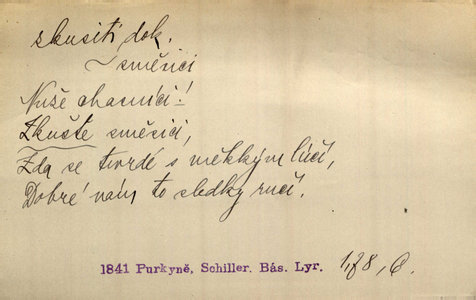 skusiti dok.
směsici
Nuže chasníci!
Zkuste směsici,
Zda se tvrdé s měkkým lúčí,
Dobré nám to sledky ručí.
1841 Purkyně, Schiller. Bás. Lyr. 1,78,